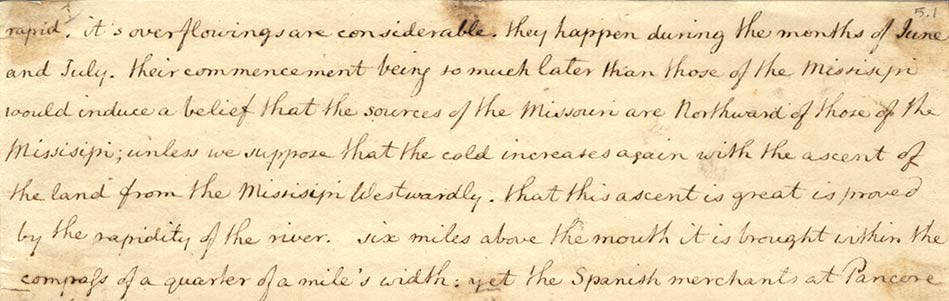 5.1
rapid. it's overflowings are considerable. they happen during the months of June
and July. their commencement being so much later than those of the Missisipi
would induce a belief that the sources of the Missouri are Northward of those of the
Missisipi; unless we suppose that the cold increases again with the ascent of
the land from the Missisipi Westwardly. that this ascent is great is proved
by the rapidity of the river. six miles above the mouth it is brought within the
compass of a quarter of a mile's width: yet the Spanish merchants at Pancore